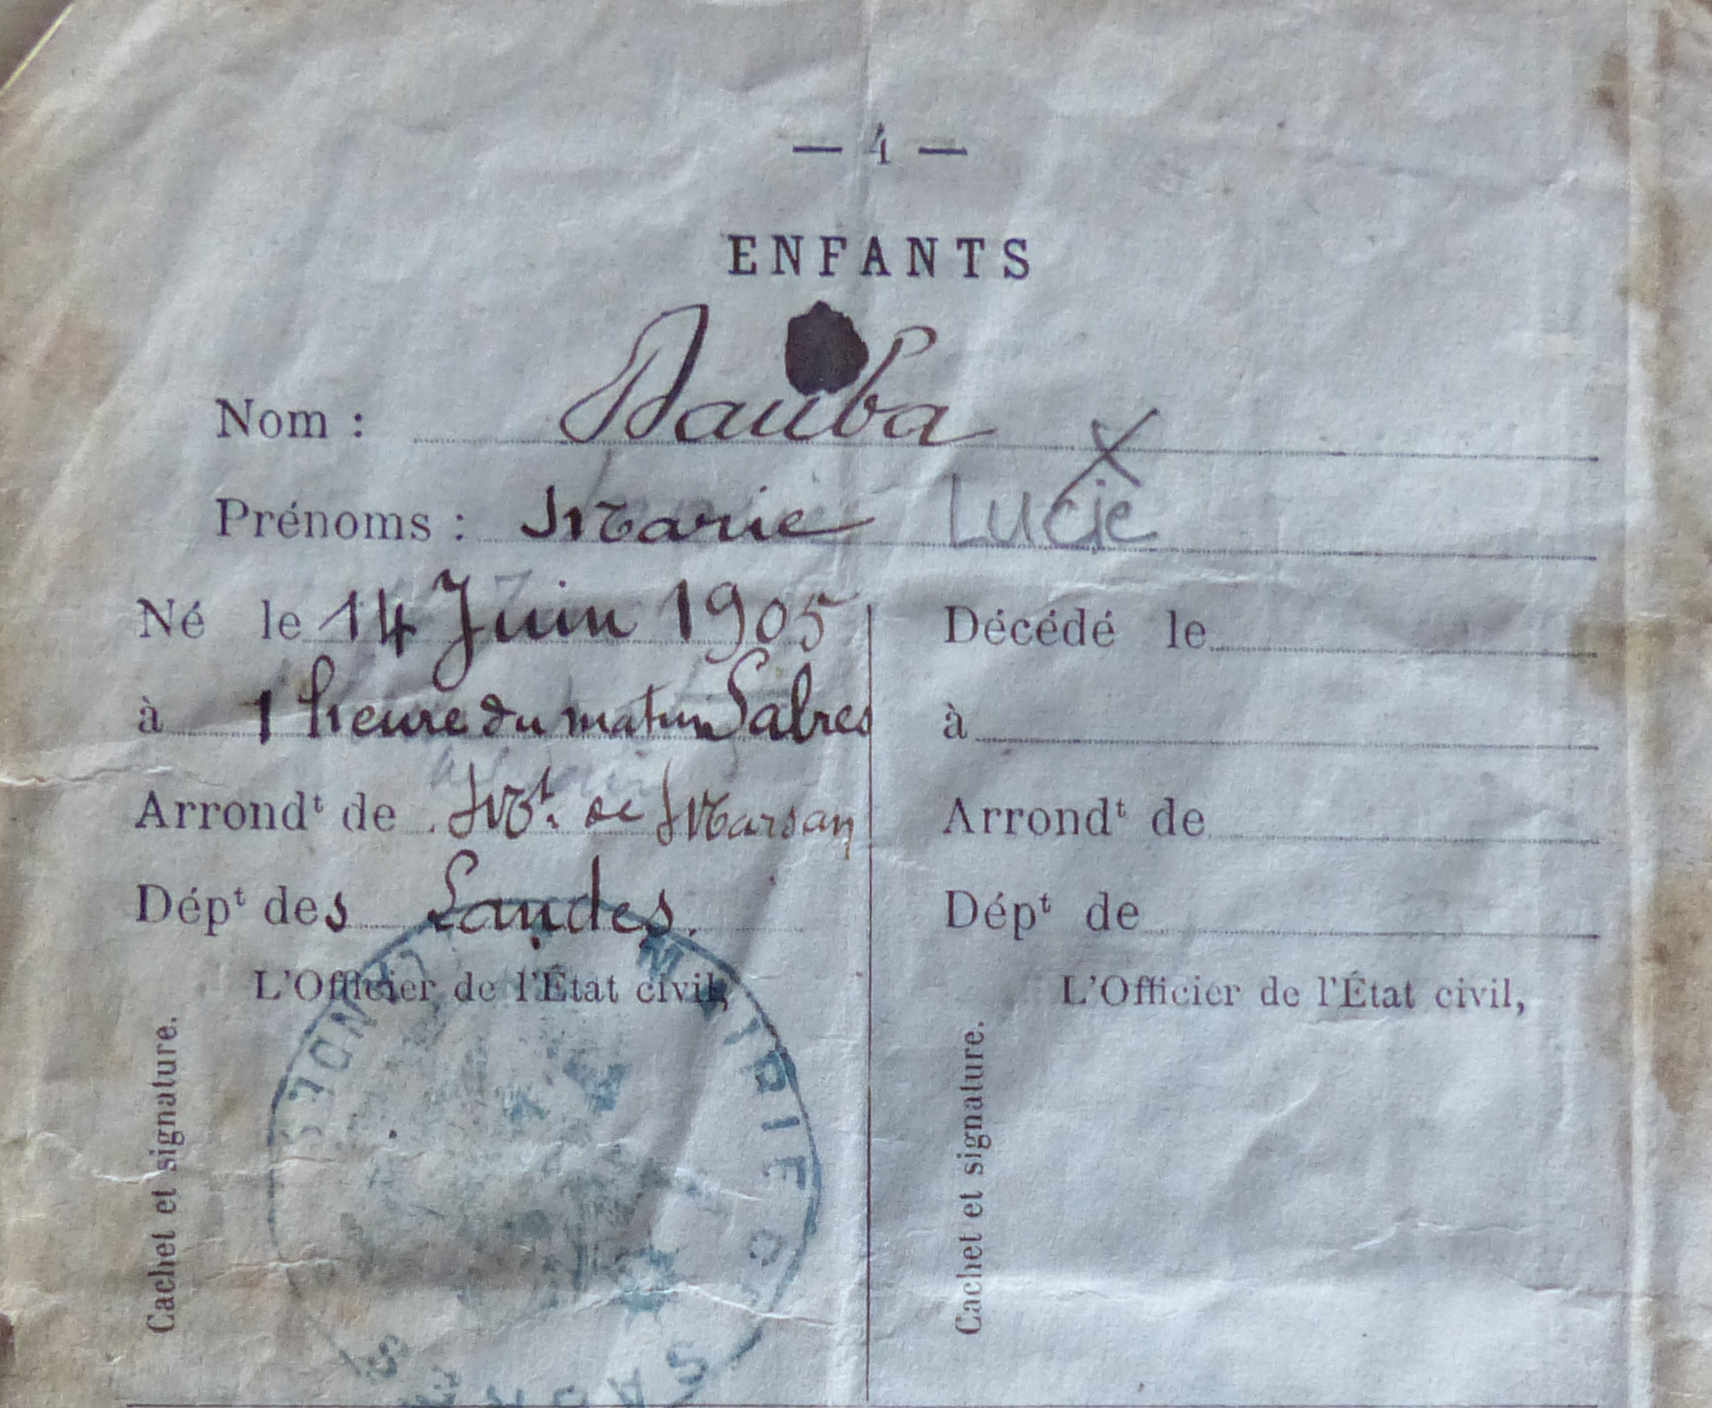 — 4 —
ENFANTS
Nom : Dauba
Prénoms : Marie Lucie
Né le 14 Juin 1905
à 1 heure du matin Sabres
Arrondᵗ de Mᵗ. de Marsan
Dépᵗ des Landes.
L'Officier de l'État civil,
Cachet et signature.
MAIRIE DE SABRES
Décédé le
à
Arrondᵗ de
Dépᵗ de
L'Officier de l'État civil,
Cachet et signature.